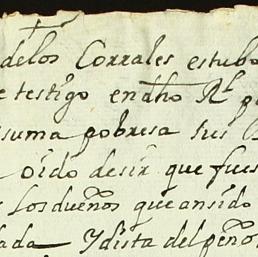 delos Corrales estubo
e testigo en dho Rl p
suma pobresa sus
oido desir que fues
los dueños que an sido
lada Y dista del peño